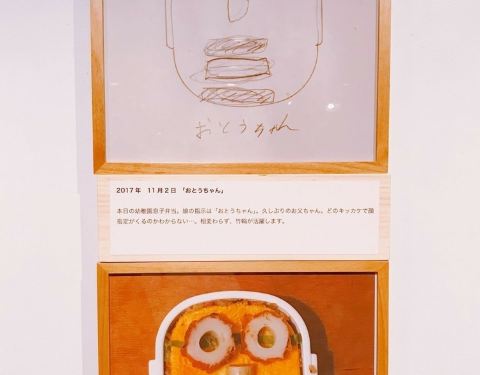 おとうちゃん
2017年 11月2日 「おとうちゃん」
本日の幼稚園息子弁当。娘の指示は「おとうちゃん」。久しぶりのお父ちゃん。どのキッカケで顔
指定がくるのかわからない…。相変わらず、竹輪が活躍します。